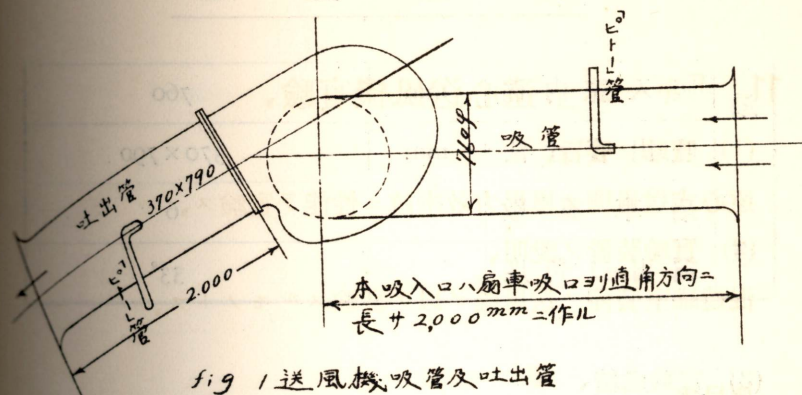 「ピトー」管
760φ
吸管
吐出管
370×790
「ピトー」管
2.000
本吸入口ハ扇車吸口ヨリ直角方向ニ
長サ2,000mmニ作ル
fig 1 送風機吸管及吐出管